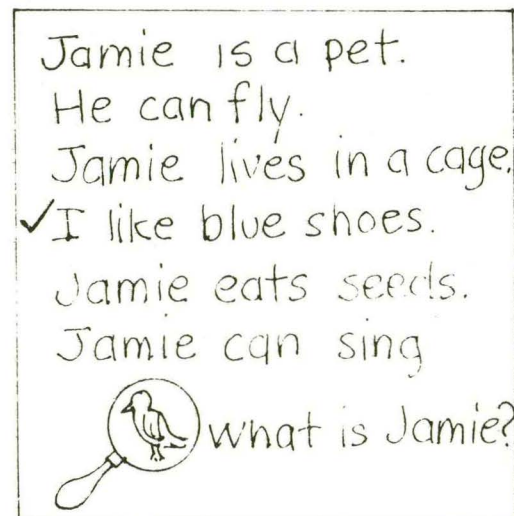 Jamie is a pet.
He can fly.
Jamie lives in a cage.
✓I like blue shoes.
Jamie eats seeds.
Jamie can sing
what is Jamie?